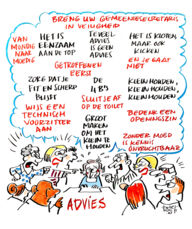 BRENG UW GEMEENTESECRETARIS
IN VEILIGHEID
VAN
MONDIG
NAAR
MOEDIG
HET IS
EENZAAM
AAN DE TOP
TEVEEL
ADVIES
IS GEEN
ADVIES
HET IS KLOTEN
MAAR OOK
KICKEN
GETROFFENEN
EERST
EN JE GAAT
NIET
ZORG DAT JE
FIT EN SCHERP
BLIJFT
DE
4 B'S
KLEIN HOUDEN,
KLEIN HOUDEN,
KLEIN HOUDEN
SLUIT JE AF
OP DE TOILET
WIJS EEN
TECHNISCH
VOORZITTER
AAN
GROOT
MAKEN
OM HET
KLEIN TE
HOUDEN
BEDENK EEN
OPENINGSZIN
ZONDER MOED
IS KENNIS
ONVRUCHTBAAR
ADVIES